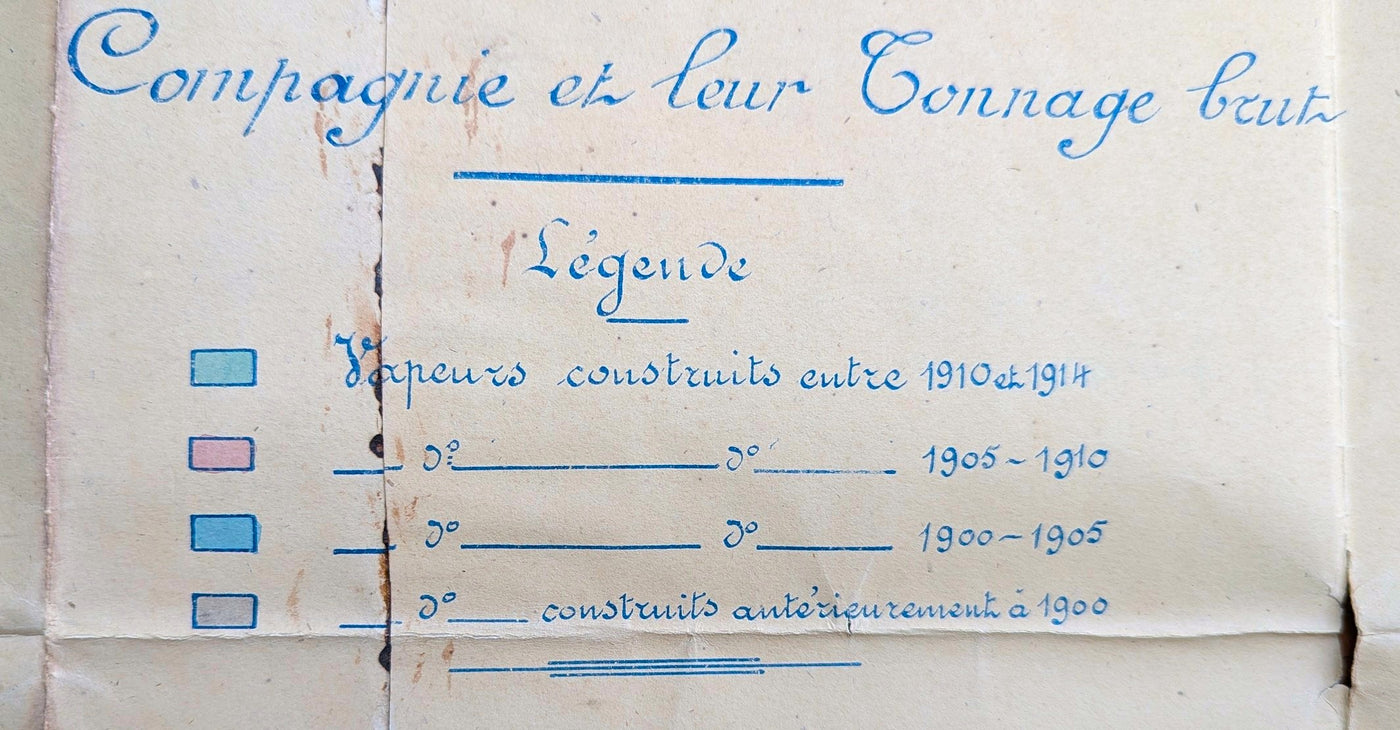 Compagnie et leur Tonnage brut
Légende
Vapeurs construits entre 1910 et 1914
__ dº ____ dº ____ 1905 ~ 1910
__ dº ____ dº ____ 1900 ~ 1905
__ dº ____ construits antérieurement à 1900